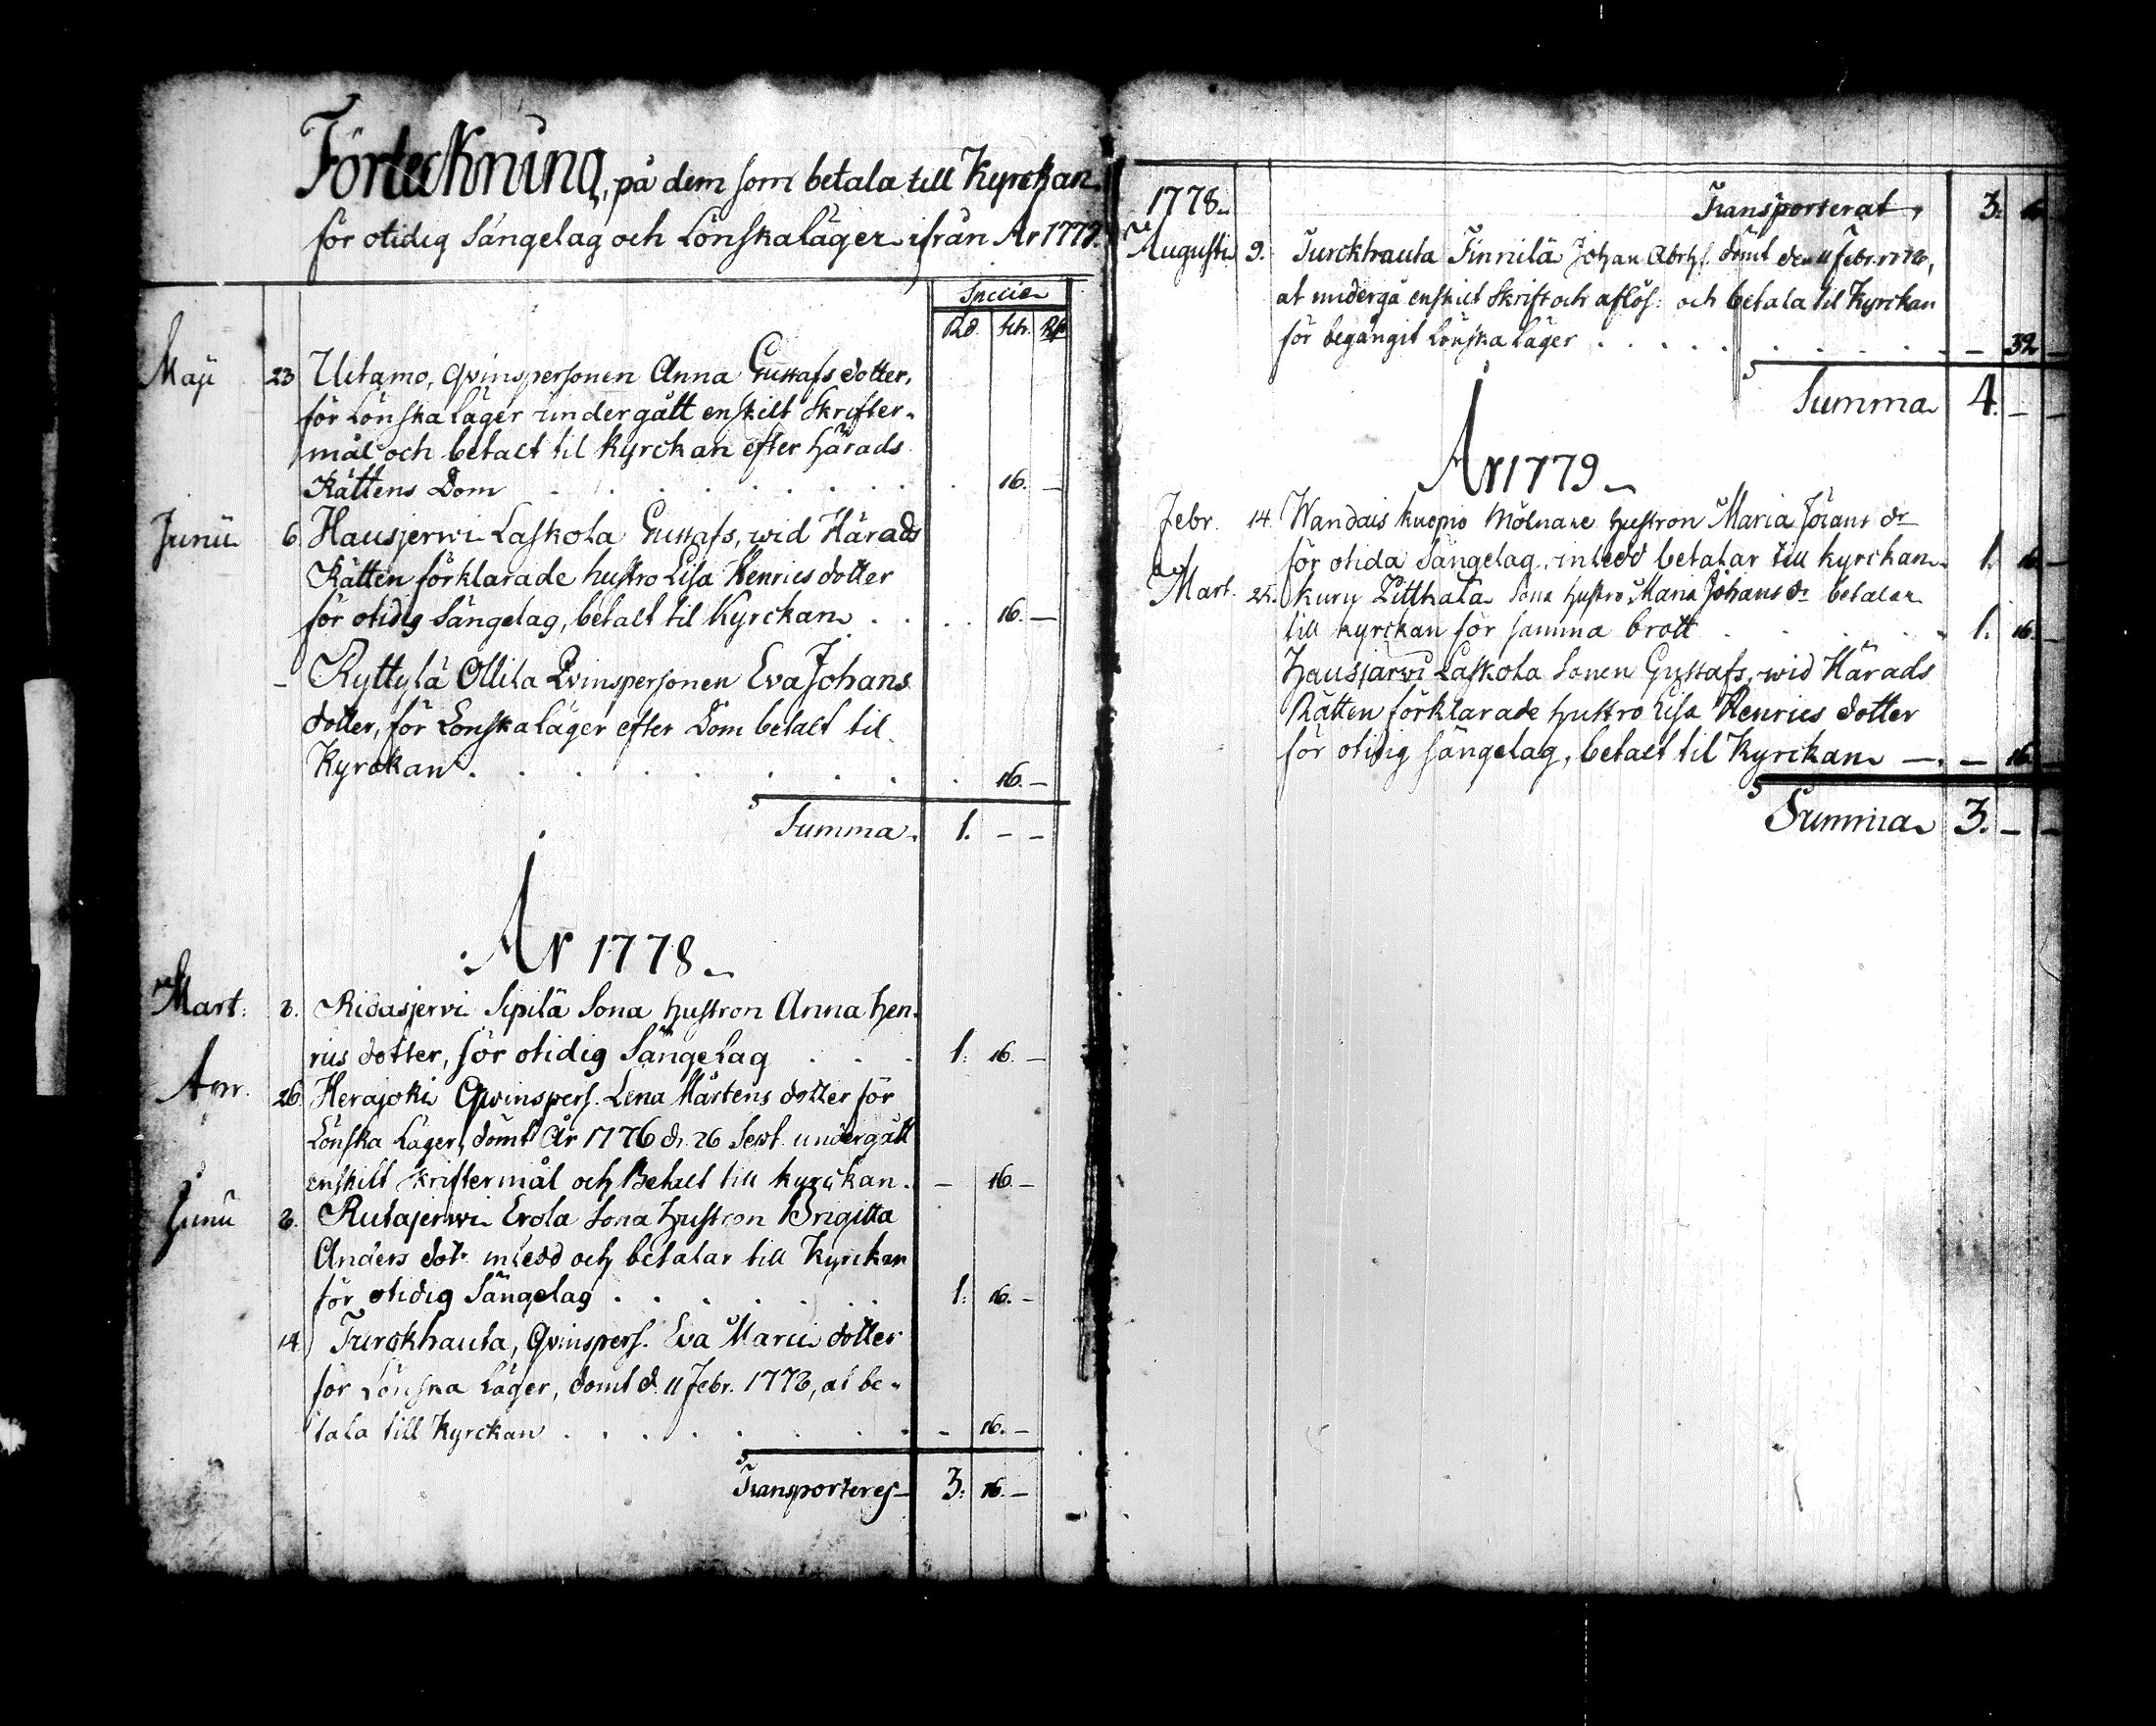 Förteckning, på dem som betala till Kyrckan
för otidig Sängelag och Lönskaläger ifrån År 1777.
Specie
Rd. sch. Rst
Maji 23 Uitamo, Qvinspersonen Anna Gustafs dotter,
för Lönskaläger undergått enskilt Skrifter-
mål och betalt til Kyrckan efter Härads
Rättens Dom . . . . 16. —
Junii 6. Hausjerwi Laskola Gustafs, wid Härads
Rätten förklarade hustro Lisa Henrics dotter
för otidig Sängelag, betalt til Kyrckan . . . 16. —
— Ryttylä Ollila Qvinspersonen Eva Johans
dotter, för Lönskaläger efter Dom betalt til
Kyrckan . . . . 16. —
Summa. 1. — —
År 1778.
Mart. 8. Ridasjervi Sipilä Sona hustron Anna Hen-
rics dotter, för otidig Sängelag . . . 1: 16. —
Apr. 26. Herajoki Qwinspers. Lena Mårtens dotter för
Lönska Läger, dömt År 1776 d. 26 Sept. undergått
enskilt skriftermål och Betalt till kyrckan. — 16. —
Junii 8. Rutajerwi Erola Sona Hustron Brigitta
Anders dotr inledd och betalar till Kyrckan
för otidig Sängelag . . . . 1: 16. —
14. Turckhauta, Qvinspers. Eva Marci dotter
för Lönska Läger, dömt d. 11 Febr. 1778, at be-
tala till Kyrckan . . . . — 16. —
Transporteres — 3: 16. —
1778. Transporterat, 3: 16
Augusti 9. Turckhauta Finnilä Johan Abrhs. dömt den 11 Febr. 1778,
at undergå enskilt Skrift och aflös: och betala til Kyrckan
för begångit Lönska Läger . . . . — 32 —
Summa 4. — —
År 1779.
Febr. 14. Wandais kuopio Mölnare hustron Maria Jörans dr
för otida Sängelag, inledd betalar till kyrckan. 1. 16. —
Mart. 25. kuru Sona hustro Maria Johans dr betalar
till kyrckan för samma brott . . . 1. 16. —
Hausjärvi Laskola Sonen Gustafs, wid Härads
Rätten förklarade hustro Lisa Henrics dotter
för otidig sängelag, betalt til Kyrckan — . — 16.
Summa 3. — —